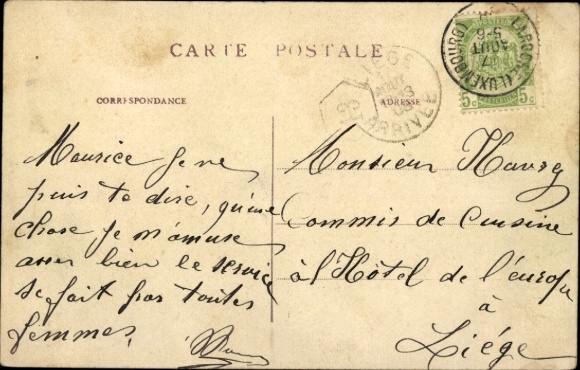 CARTE POSTALE
CORRESPONDANCE
ADRESSE
LIÉGE
ARRIVÉE
LAROCHE (LUXEMBOURG)
17
AOUT
5-6
5c 5c
Maurice je ne
puis te dire, qu'une
chose je m'amuse
assez bien le service
se fait par toutes
femmes.
Monsieur
Commis de Cuisine
à l'Hôtel de l'europe
à
Liége